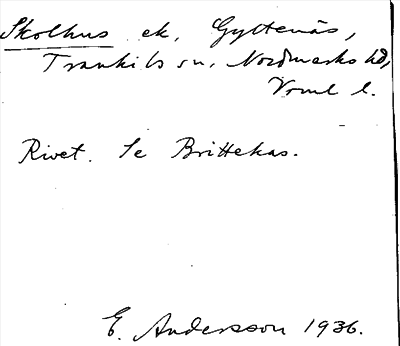 Skolhus ek, Gyttenäs,
Trankils sn, Nordmarks hd,
Vrml l.
Rivet. Se Brittekas.
E. Andersson 1936.